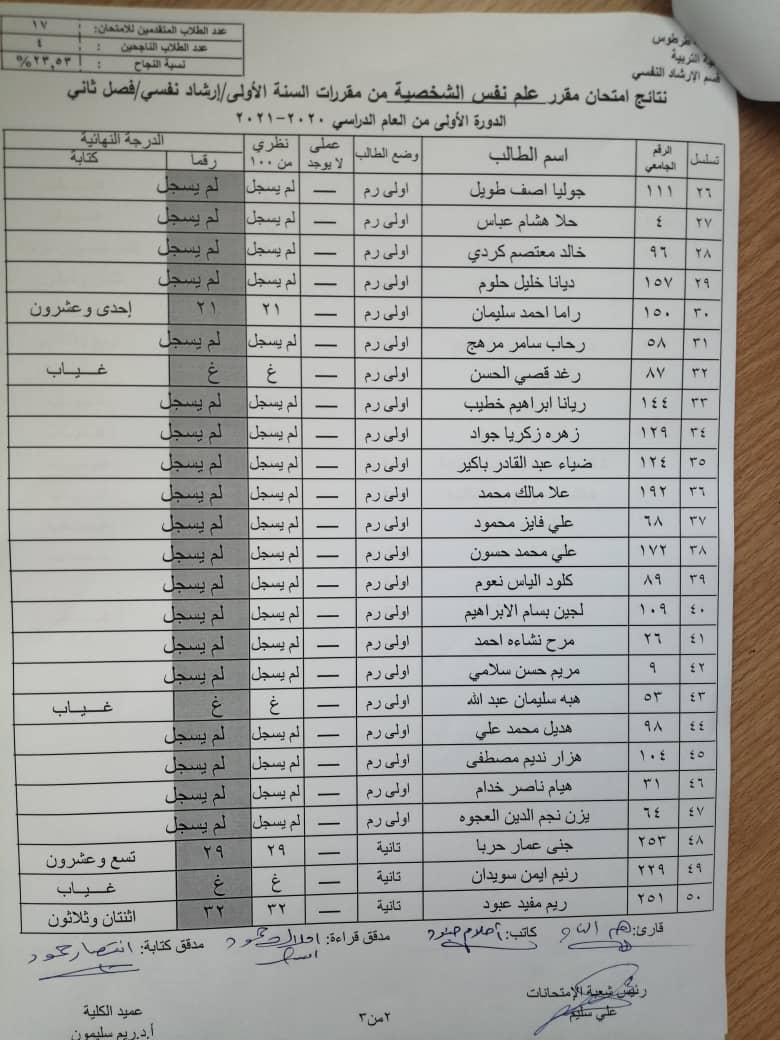 عدد الطلاب المتقدمين للامتحان: ١٧
عدد الطلاب الناجحين : ٤
نسبة النجاح : ٢٣,٥٣%
طرطوس
التربية
قسم الإرشاد النفسي
نتائج امتحان مقرر علم نفس الشخصية من مقررات السنة الأولى/إرشاد نفسي/فصل ثاني
الدورة الأولى من العام الدراسي ٢٠٢٠-٢٠٢١
تسلسل الرقم الجامعي اسم الطالب وضع الطالب عملي لا يوجد نظري من ١٠٠ الدرجة النهائية رقما كتابة
٢٦ ١١١ جوليا اصف طويل اولى رم — لم يسجل لم يسجل
٢٧ ٤ حلا هشام عباس اولى رم — لم يسجل لم يسجل
٢٨ ٩٦ خالد معتصم كردي اولى رم — لم يسجل لم يسجل
٢٩ ١٥٧ ديانا خليل حلوم اولى رم — لم يسجل لم يسجل
٣٠ ١٥٠ راما احمد سليمان اولى رم — ٢١ ٢١ إحدى وعشرون
٣١ ٥٨ رحاب سامر مرهج اولى رم — لم يسجل لم يسجل
٣٢ ٨٧ رغد قصي الحسن اولى رم — غ غ غـــيـاب
٣٣ ١٤٤ ريانا ابراهيم خطيب اولى رم — لم يسجل لم يسجل
٣٤ ١٢٩ زهره زكريا جواد اولى رم — لم يسجل لم يسجل
٣٥ ١٢٤ ضياء عبد القادر باكير اولى رم — لم يسجل لم يسجل
٣٦ ١٩٢ علا مالك محمد اولى رم — لم يسجل لم يسجل
٣٧ ٦٨ علي فايز محمود اولى رم — لم يسجل لم يسجل
٣٨ ١٧٢ علي محمد حسون اولى رم — لم يسجل لم يسجل
٣٩ ٨٩ كلود الياس نعوم اولى رم — لم يسجل لم يسجل
٤٠ ١٠٩ لجين بسام الابراهيم اولى رم — لم يسجل لم يسجل
٤١ ٢٦ مرح نشاءه احمد اولى رم — لم يسجل لم يسجل
٤٢ ٩ مريم حسن سلامي اولى رم — لم يسجل لم يسجل
٤٣ ٥٣ هبه سليمان عبد الله اولى رم — غ غ غـــيـاب
٤٤ ٩٨ هديل محمد علي اولى رم — لم يسجل لم يسجل
٤٥ ١٠٤ هزار نديم مصطفى اولى رم — لم يسجل لم يسجل
٤٦ ٣١ هيام ناصر خدام اولى رم — لم يسجل لم يسجل
٤٧ ٦٤ يزن نجم الدين العجوه اولى رم — لم يسجل لم يسجل
٤٨ ٢٥٣ جنى عمار حربا تانية — ٢٩ ٢٩ تسع وعشرون
٤٩ ٢٢٩ رنيم ايمن سويدان تانية — غ غ غـــيـاب
٥٠ ٢٥١ ريم مفيد عبود تانية — ٣٢ ٣٢ اثنتان وثلاثون
قارئ: كاتب: أحلام مدقق قراءة: مدقق كتابة: انتصار حمود
رئيس شعبة الإمتحانات
علي سليم
٢من٣
عميد الكلية
أ.د.ريم سليمون